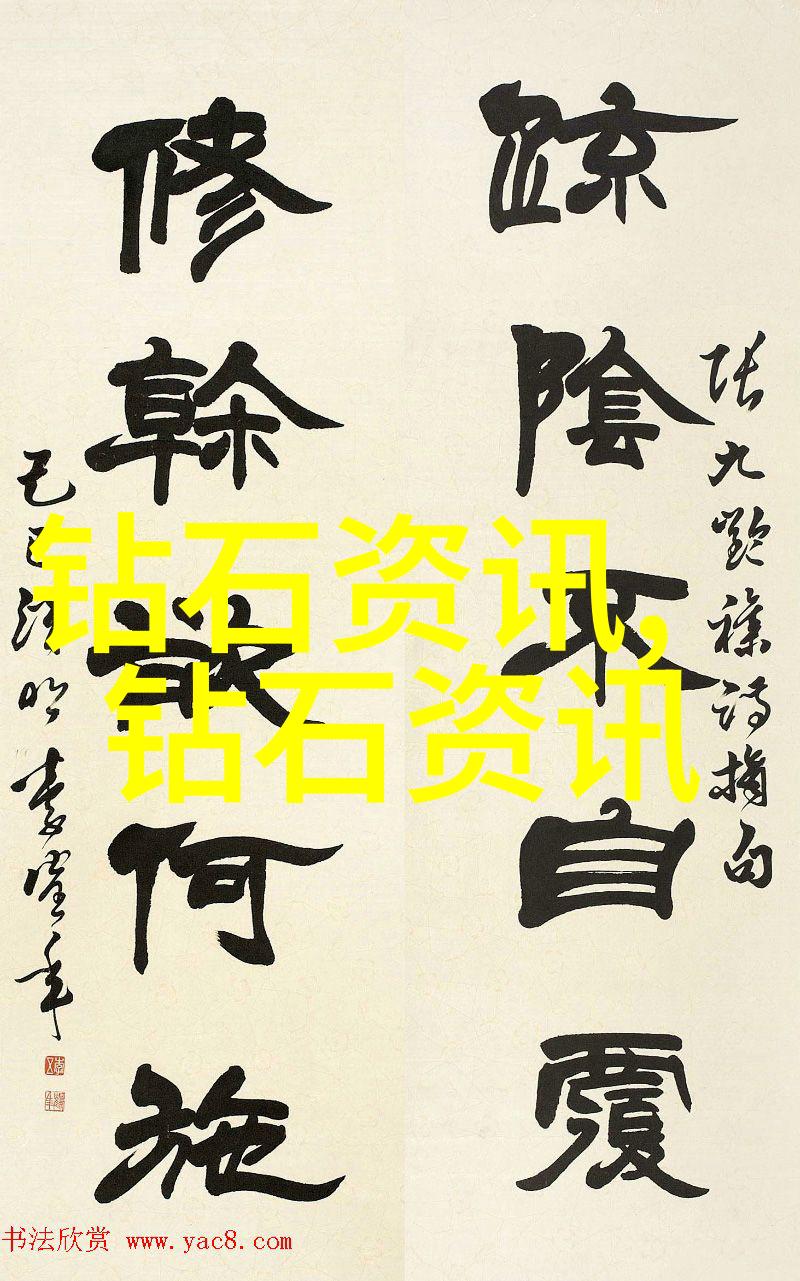 張九齡雜詩摘句
疏陰不自覆
修幹欲何施
己巳清明
钻石资讯,
钻石资讯
书法欣赏 www.yac8.com